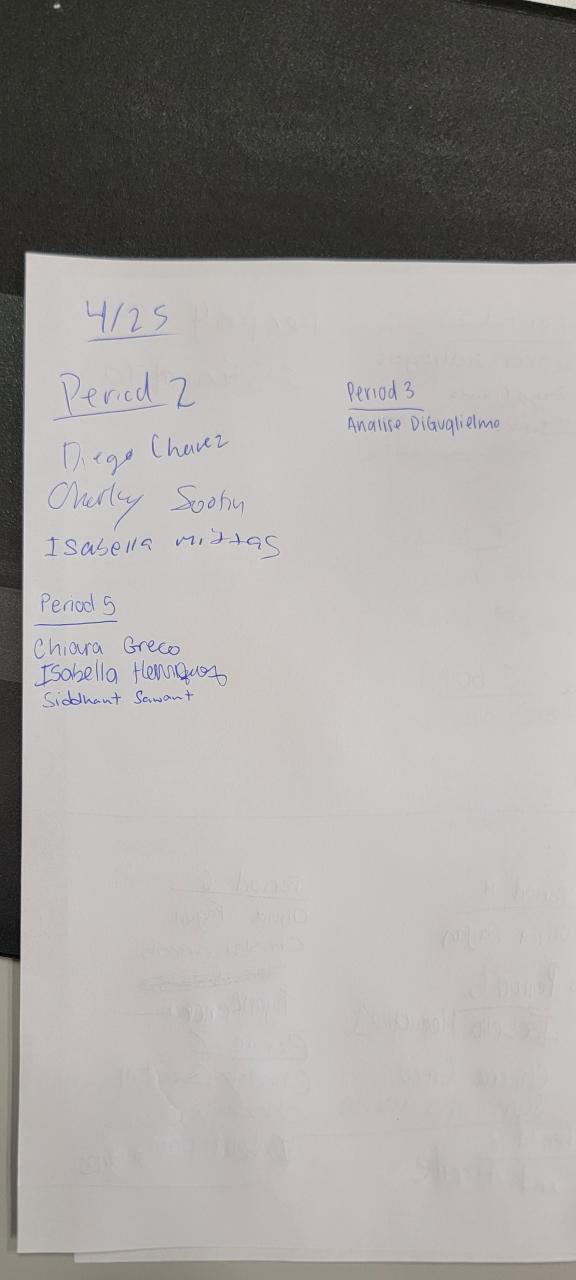 4/25
Period 2
Diego Chavez
Charley
Isabella mittas
Period 3
Analise DiGuglielmo
Period 5
Chiara Greco
Isabella Henriquez
Siddhant Sawant